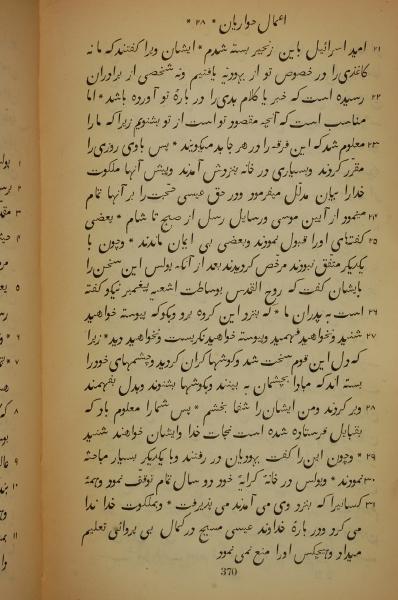 اعمال حواریان * ۲۸ *
۲۱ امید اسرائیل باین زنجیر بسته شدم * ایشان ویرا گفتند که ما نه
کاغذی را در خصوص تو از یهودیه یافتیم ونه شخصی از برادران
۲۲ رسیده است که خبر یا کلام بدی را در بارهٔ تو آورده باشد * اما
مناسب است که آنچه مقصود تو است از تو بشنویم زیرا که ما را
۲۳ معلوم شد که این فرقه را در هر جا بد میگویند * پس باوی روزی را
مقرر کردند وبسیاری در خانه بنزدش آمدند وپیش آنها ملکوت
خدا را بیان مدلل میفرمود ودر حق عیسی حجت را بر آنها تمام
۲۴ مینمود از آیین موسی ورسایل رسل از صبح تا شام * بعضی
۲۵ گفتهای اورا قبول نمودند وبعضی بی ایمان ماندند * وچون با
یکدیگر متفق نبودند مرخص گردیدند بعد از آنکه پولس این سخن را
بایشان گفت که روح القدس بوساطت اشعیه پیغمبر نیکو گفته
۲۶ است به پدران ما * که بنزد این گروه برو وبگو که پیوسته خواهید
۲۷ شنید ونخواهید فهمید وپیوسته خواهید نگریست ونخواهید دید * زیرا
که دل این قوم سخت شد وگوشها گران کردید وچشمهای خود را
بسته اند که مبادا بچشمان به بینند وبگوشها بشنوند وبدل بفهمند
۲۸ وبر گردند ومن ایشان را شفا بخشم * پس شما را معلوم باد که
بقبایل فرستاده شده است نجات خدا وایشان خواهند شنید
۲۹ * وچون این را گفت یهودیان در رفتند وبا یکدیگر بسیار مباحثه
۳۰ نمودند * وپولس در خانهٔ کرایهٔ خود دو سال تمام توقف نمود وهمهٔ
۳۱ کسانیرا که بنزد وی می آمدند می پذیرفت * وبملکوت خدا ندا
می کرد ودر بارهٔ خداوند عیسی مسیح در کمال بی پروائی تعلیم
میداد وهیچکس اورا منع نمی نمود
370